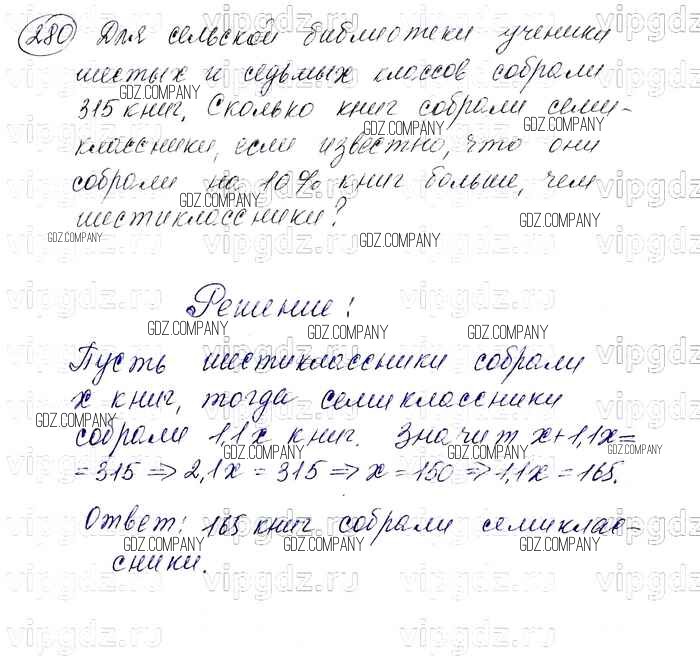 280 Для сельской библиотеки ученики
шестых и седьмых классов собрали
315 книг. Сколько книг собрали семи-
классники, если известно, что они
собрали на 10% книг больше, чем
шестиклассники?
Решение:
Пусть шестиклассники собрали
x книг, тогда семиклассники
собрали 1,1x книг. Значит x+1,1x=
=315 ⇒ 2,1x = 315 ⇒ x = 150 ⇒ 1,1x = 165.
Ответ: 165 книг собрали семиклас-
сники.